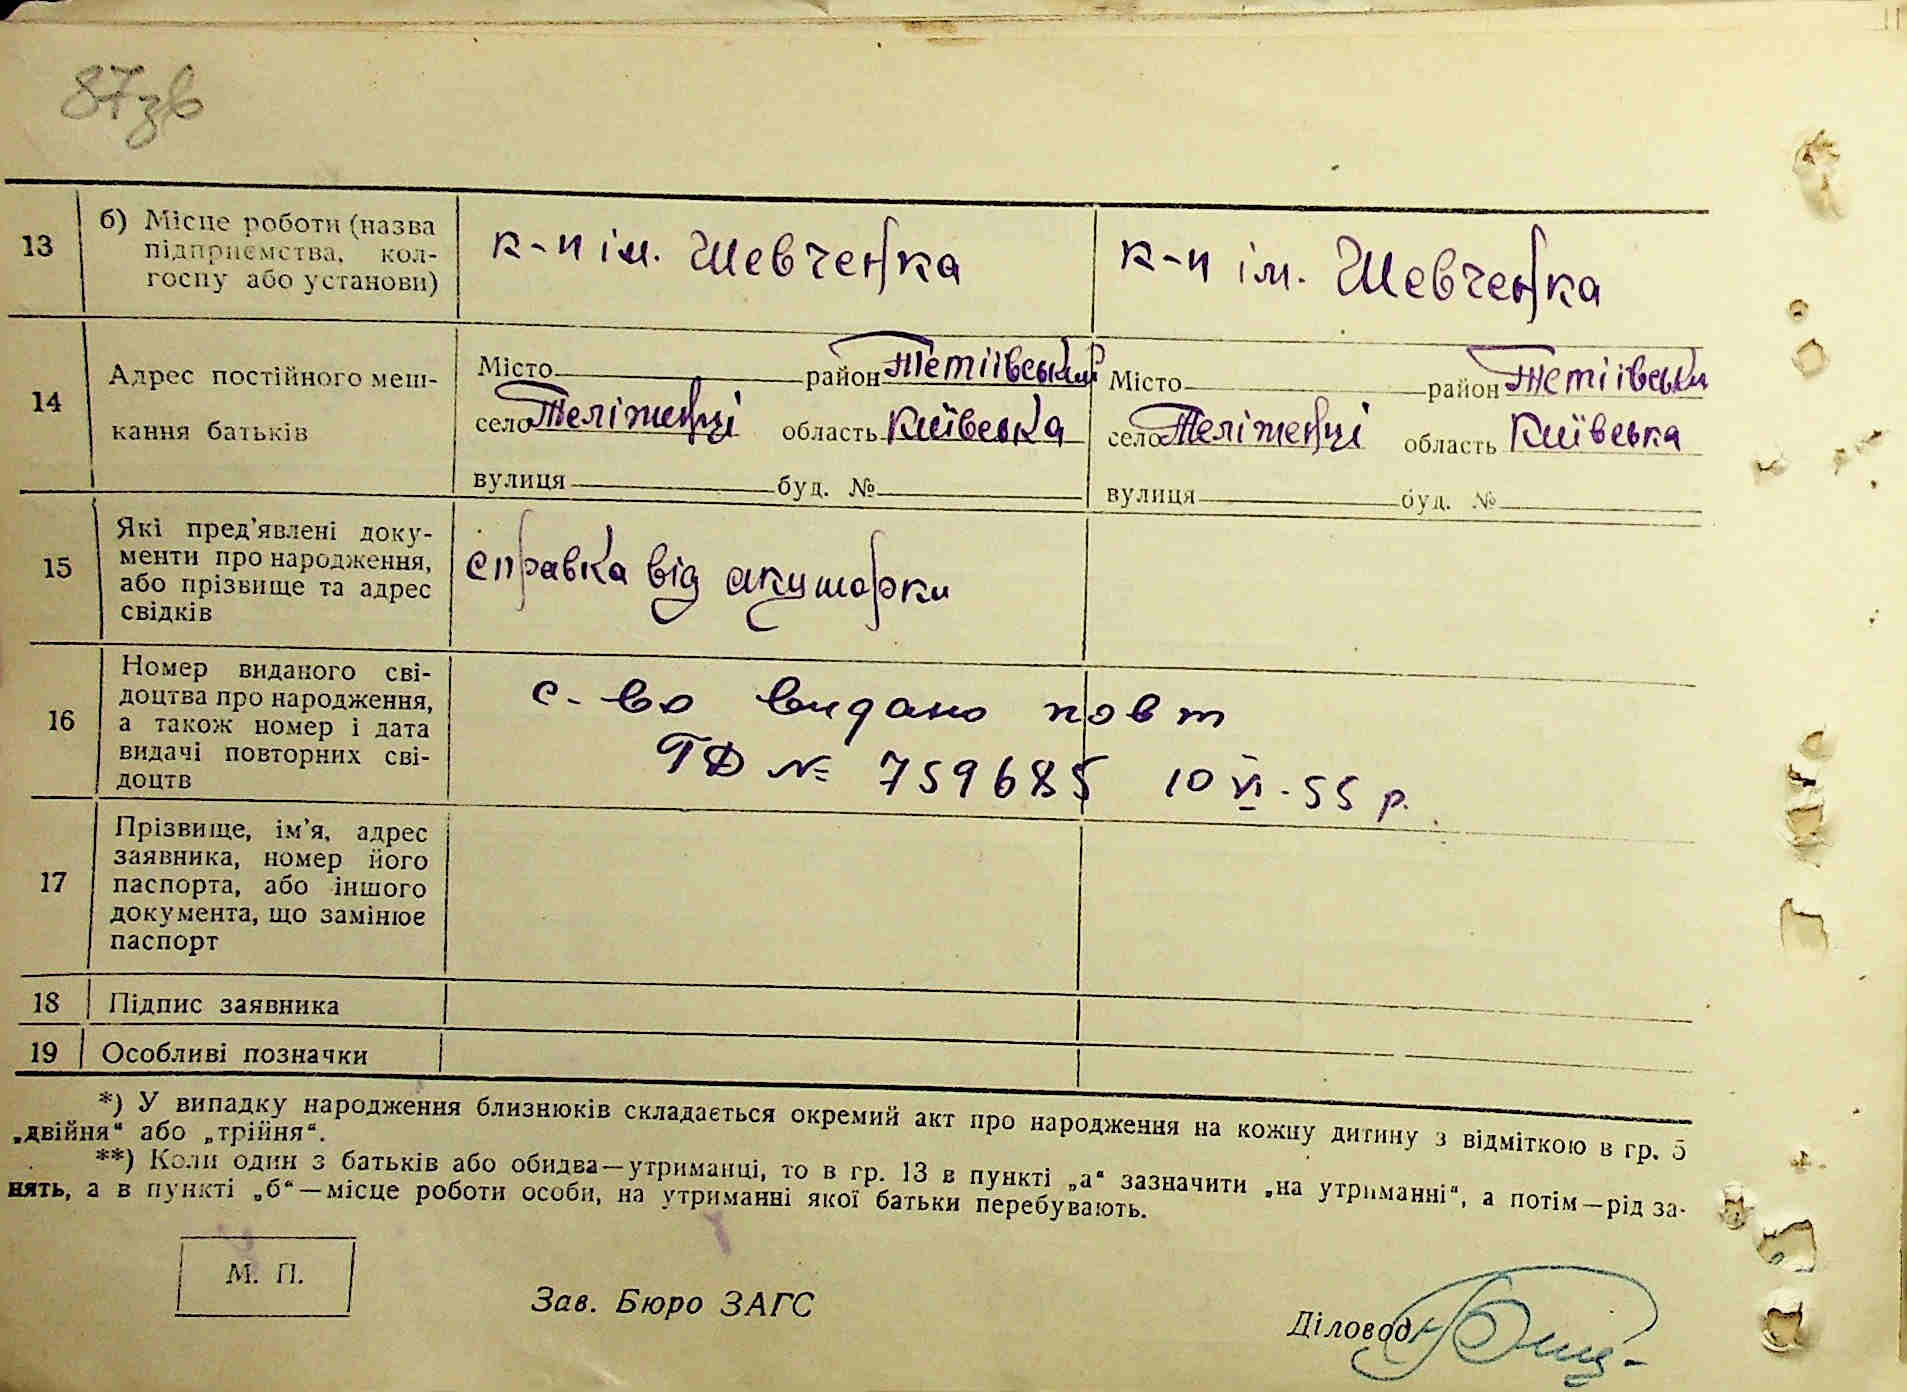 87зв
13 б) Місце роботи (назва
підприємства, кол-
госпу або установи)
к-п ім. Шевченка к-п ім. Шевченка
14 Адрес постійного меш-
кання батьків
Місто район Тетіївський Місто район Тетіївськи
село Теліженці область Київська село Теліженці область Київська
вулиця буд. № вулиця буд. №
15 Які пред'явлені доку-
менти про народження,
або прізвище та адрес
свідків
справка від акушорки
16 Номер виданого сві-
доцтва про народження,
а також номер і дата
видачі повторних сві-
доцтв
с-во видано повт
ГД № 759685 10 VI-55 р.
17 Прізвище, ім'я, адрес
заявника, номер його
паспорта, або іншого
документа, що замінює
паспорт
18 Підпис заявника
19 Особливі позначки
*) У випадку народження близнюків складається окремий акт про народження на кожну дитину з відміткою в гр. 5
„двійня“ або „трійня“.
**) Коли один з батьків або обидва—утриманці, то в гр. 13 в пункті „а“ зазначити „на утриманні“, а потім—рід за-
нять, а в пункті „б“—місце роботи особи, на утриманні якої батьки перебувають.
М. П.
Зав. Бюро ЗАГС
Діловод